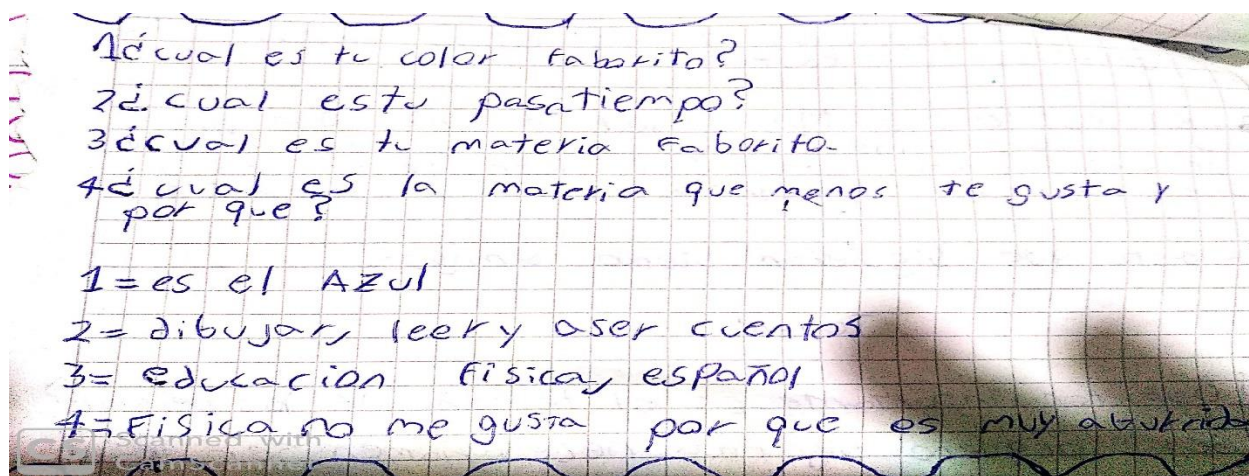 1¿cual es tu color faborito?
2¿cual es tu pasatiempo?
3¿cual es tu materia faborito.
4¿cual es la materia que menos te gusta y
por que?
1=es el Azul
2= dibujar, leer y aser cuentos
3= educacion fisica, español
4=Fisica no me gusta por que es muy aburrido
Scanned with
CamScanner